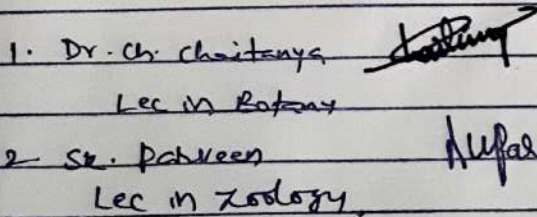 1. Dr. Ch. Chaitanya
Lec in Botany
2 Sk. Parveen
Lec in Zoology